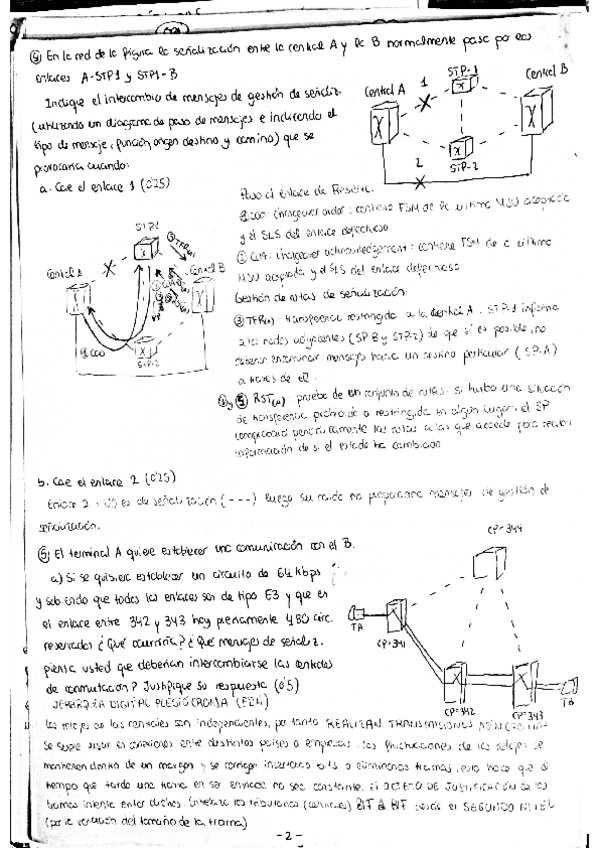 ④ En la red de la figura la señalización entre la central A y la B normalmente pasa por los
enlaces A-STP1 y STP1-B
Indique el intercambio de mensajes de gestión de señaliz.
(utilizando un diagrama de paso de mensajes e indicando el
tipo de mensaje, función, origen destino y camino) que se
provocaría cuando:
a. Cae el enlace 1 (0'25)
Central A
1
STP-1
Central B
X
X
2
STP-2
Paso al enlace de Reserva.
COO: changeover order: contiene FSM de la último MSU aceptada
y el SLS del enlace defectuoso
① COA: changeover acknowledgement: contiene FSM de último
MSU aceptada y el SLS del enlace defectuoso
Gestión de rutas de señalización:
③ TFR(A): transferencia restringida a la Central A. STP-1 informa
a los nodos adyacentes (SP B y STP-2) de que si es posible, no
deberán encaminar mensajes hacia un destino particular (SP-A)
a través de él.
④ y ⑤ RST(A) prueba de un conjunto de rutas. Si hubo una situación
de transferencia prohibida o restringida en algún lugar, el SP
comprobará periódicamente las rutas a las que accede para recibir
información de si el estado ha cambiado
STP1
③ TFR(A)
Central A
Central B
COO
STP-2
b. Cae el enlace 2 (0'25)
Enlace 2 no es de señalización (---) luego su caída no proporciona mensajes de gestión de
señalización.
⑤ El terminal A quiere establecer una comunicación con el B.
a) Si se quisiera establecer un circuito de 64 kbps
y sabiendo que todos los enlaces son de tipo E3 y que en
el enlace entre 342 y 343 hay previamente 480 circ.
reservados ¿Qué ocurriría? ¿Qué mensajes de señaliz.
piensa usted que deberían intercambiarse las centrales
de conmutación? Justifique su respuesta (0'5)
CP=344
TA
CP=341
CP=342
CP=343
TB
JERARQUÍA DIGITAL PLESIÓCRONA
Los relojes de las centrales son independientes, por tanto REALIZAN TRANSMISIONES ASÍNCRONAS
Se suele usar en conexiones entre distintos países o empresas. Las fluctuaciones de los relojes se
mantienen dentro de un margen y se corrigen insertando bits o eliminando tramas, esto hace que el
tiempo que tarda una trama en ser enviada no sea constante. El OCTETO DE JUSTIFICACIÓN de las
tramas intenta evitar dichos. Entrelaza los tributarios BIT A BIT desde el SEGUNDO NIVEL
(por la variación del tamaño de la trama)
-2-